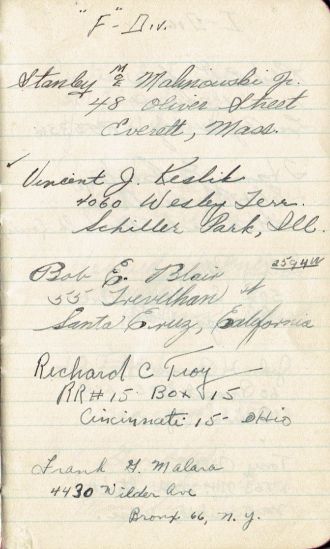 "F" - Div.
Stanley Mc Malinowski Jr.
48 Oliver Street
Everett, Mass.
Vincent J. Keslik
4060 Wesley Terr.
Schiller Park, Ill.
Bob E. Blair
2594W
55 Trevethan st
Santa Cruz, California
Richard C Troy
RR#15 Box 15
Cincinnati 15 - Ohio
Frank G. Malara
4430 Wilder Ave
Bronx 66, N.Y.